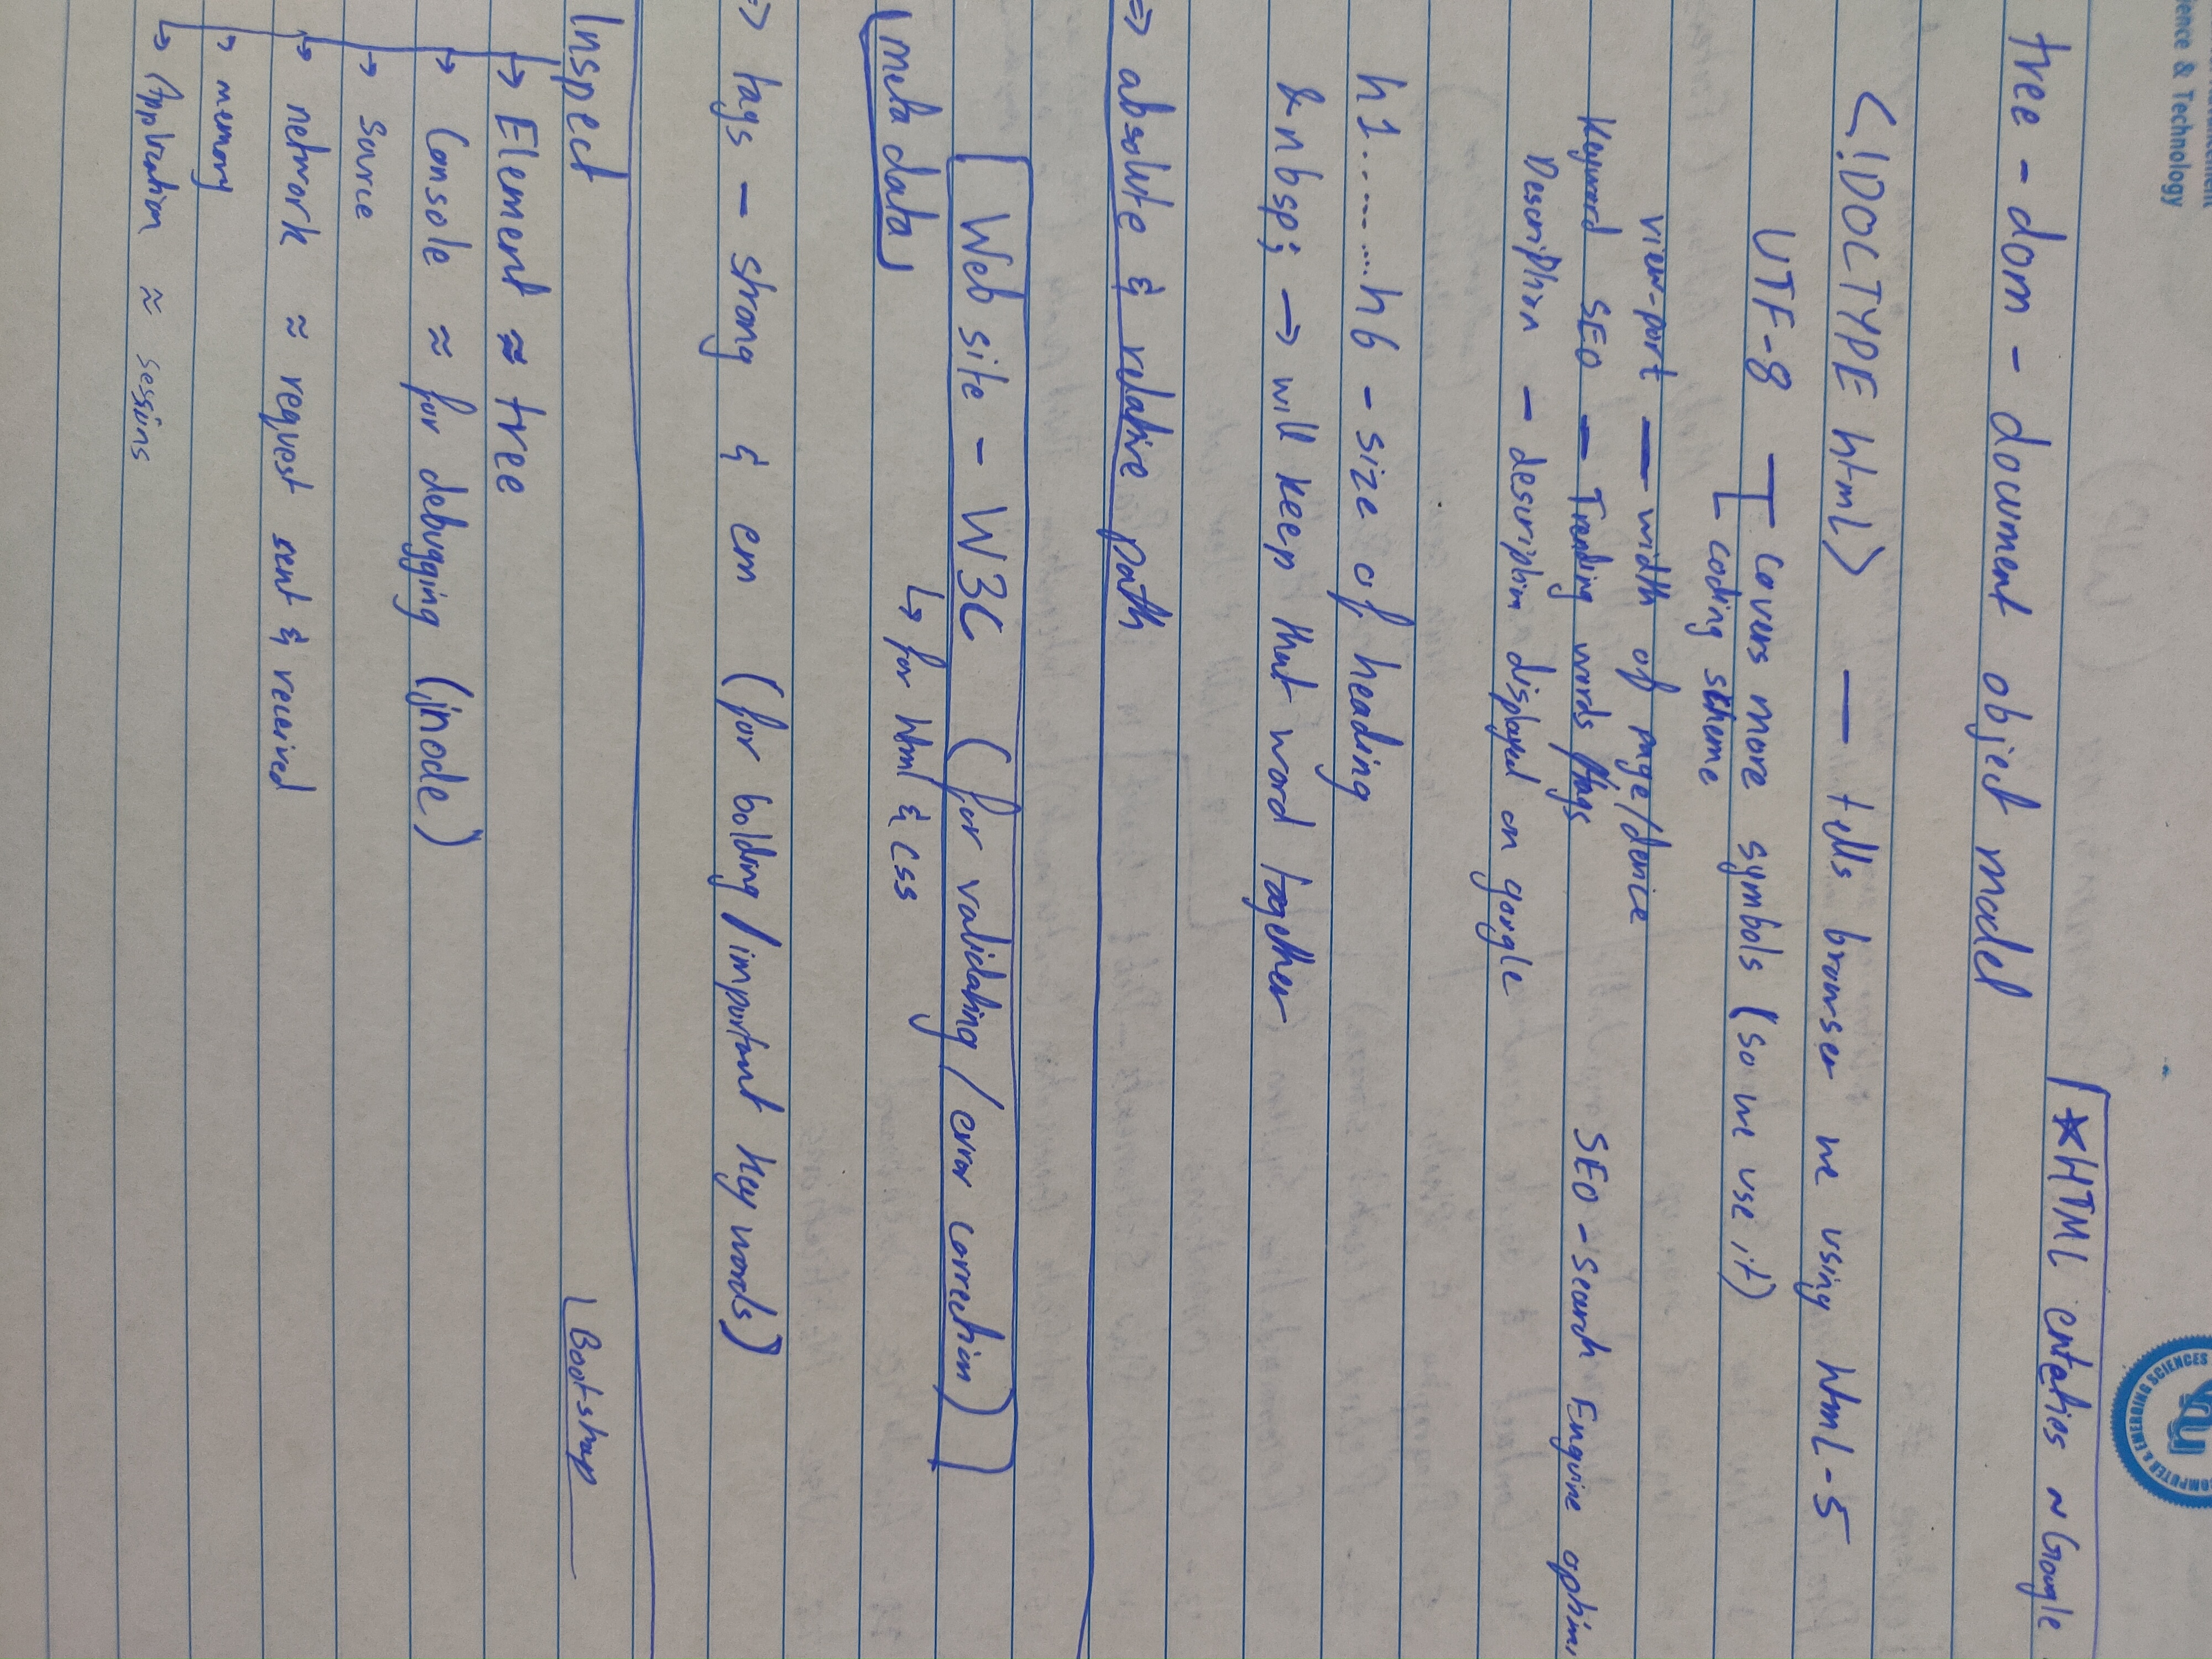 ience & Technology
COMPUTER & EMERGING SCIENCES
*HTML enteties ~ Google
tree - dom - document object model
<!DOCTYPE html> — tells browser we using html-5
UTF-8 — covers more symbols (so we use it)
coding scheme
view-port — width of page/device
Keyword SEO — Trending words /tags SEO - Search Enguine optimi
Description — description displayed on google
h1..........h6 - size of heading
&nbsp; → will keep that word together
⇒ absolute & relative path
Web site - W3C (for validating / error correction)
meta data
↳ for html & css
⇒ tags — strong & em (for bolding / important key words)
Inspect
Bootstrap
→ Element ≈ tree
→ Console ≈ for debugging (jnode)
→ Source
→ network ≈ request sent & received
→ memory
↳ Application ≈ sessions